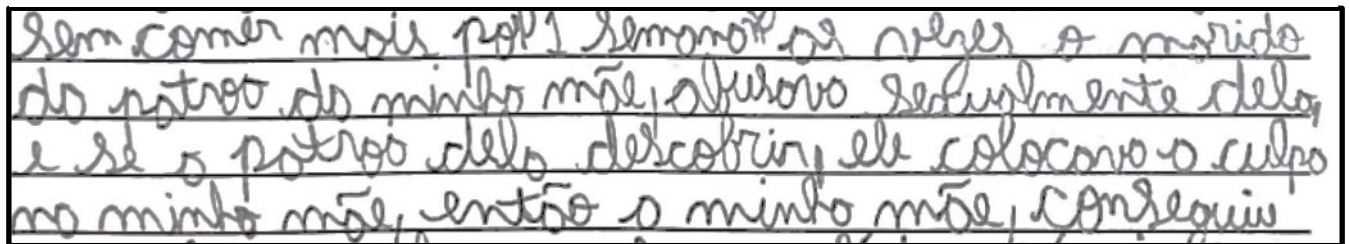 sem comer mais por 1 semana" as vezes o marido
da patroa da minha mãe, abusava sexualmente dela,
e se a patroa dela descobrir, ele colocava a culpa
na minha mãe, então a minha mãe, conseguiu